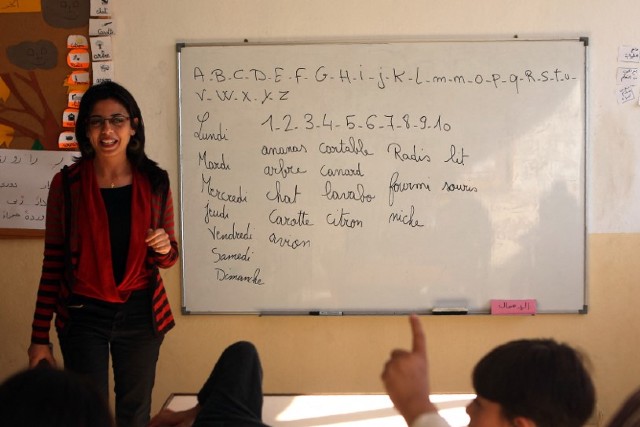 A-B-C-D-E-F-G-H-i-j-K-L-m-m-o-p-q-R-S-t-u-
V-W-X-Y-Z
Lundi 1-2-3-4-5-6-7-8-9-10
ananas cartable Radis lit
Mardi arbre canard
Mercredi chat lavabo fourmi souris
Jeudi carotte citron niche
Vendredi avion
Samedi
Dimanche